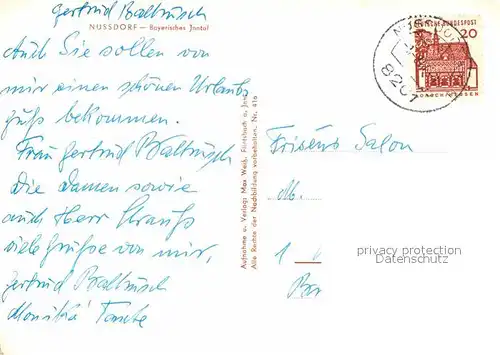 Gertrud Baltrusch
NUSSDORF — Bayerisches Inntal
Auch Sie sollen von
mir einen schönen Urlaubs
gruß bekommen.
Frau Gertrud Baltrusch
Die Damen sowie
auch Herr Strauß
viele Grüße von mir,
Gertrud Baltrusch
Tante
Aufnahme u. Verlag: Max Weiß, Fischbach a. Inn
Alle Rechte der Nachbildung vorbehalten. Nr. 416
DEUTSCHE BUNDESPOST
20
8201
Salon
M.
1
privacy protection
Datenschutz